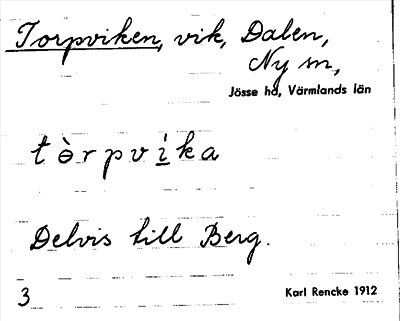 Torpviken, vik, Dalen,
Ny sn,
Jösse hd, Värmlands län
tòrpvìka
Delvis till Berg.
3
Karl Rencke 1912